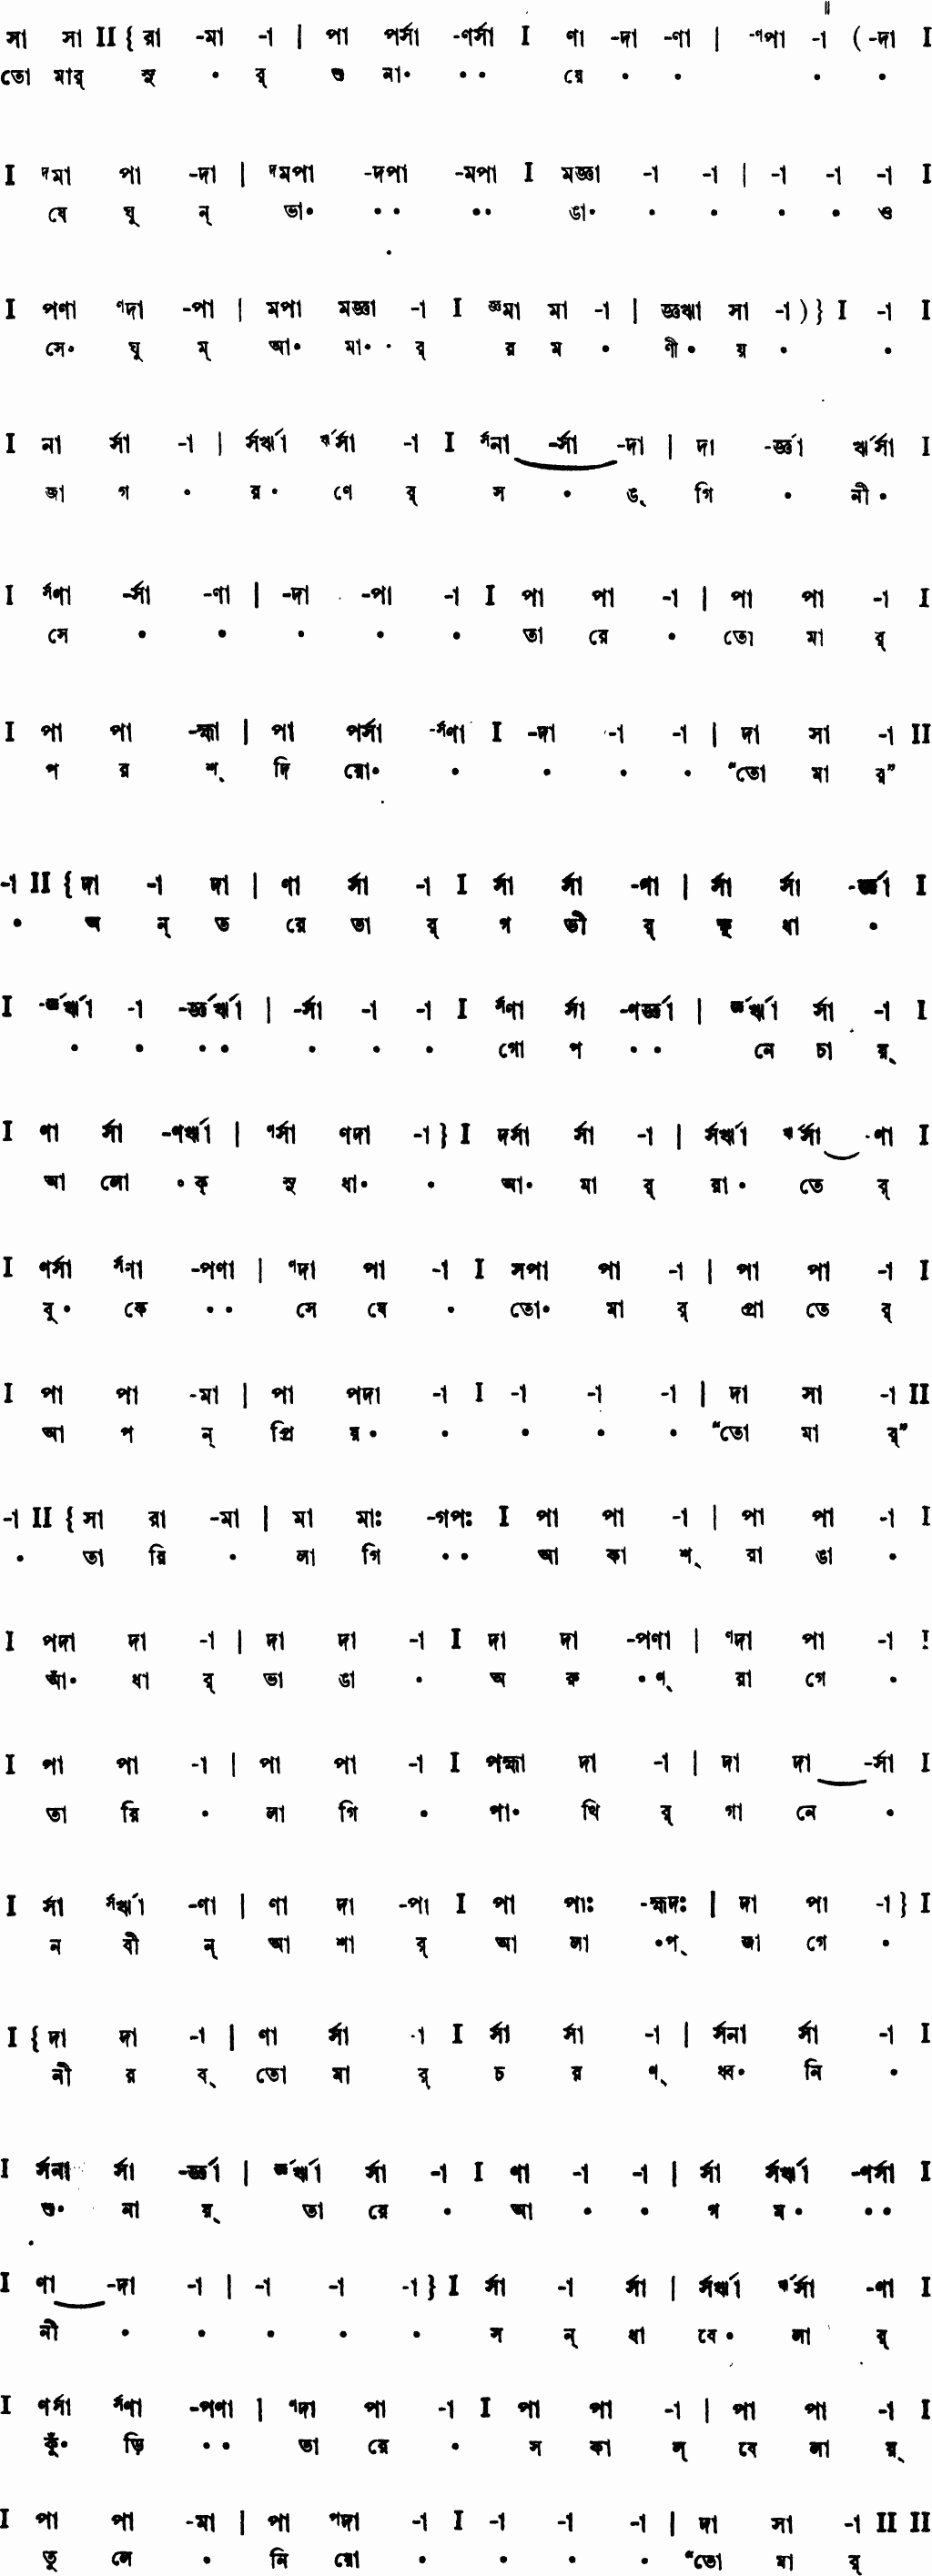 ॥
সা সা II { রা -মা -া | পা পর্সা -ণর্সা I ণা -দা -ণা | -ণপা -া ( -দা I
তো মার্ সু • র্ শু না• • • য়ে • • • •
I দমা পা -দা | দমপা -দপা -মপা I মজ্ঞা -া -া | -া -া -া I
যে ঘু ম্ ভা• • • • • ঙা• • • • • ও
I পণা ণদা -পা | মপা মজ্ঞা -া I জ্ঞমা মা -া | জ্ঞঋা সা -া ) } I -া I
সে• ঘু ম্ আ• মা• • র্ র ম • ণী • য় • •
I না র্সা -া | র্সর্ঋা র্ঋর্সা -া I র্সনা -র্সা -দা | দা -র্জ্ঞা র্ঋর্সা I
জা গ • র• ণে র্ স • ঙ্ গি • নী •
I র্সণা -র্সা -ণা | -দা -পা -া I পা পা -া | পা পা -া I
সে • • • • • তা রে • তো মা র্
I পা পা -হ্মা | পা পর্সা -র্সণা I -দা -া -া | দা সা -া II
প র শ্ দি য়ো• • • • • "তো মা র্"
-া II { দা -া দা | ণা র্সা -া I র্সা র্সা -ণা | র্সা র্সা -র্জ্ঞা I
• অ ন্ ত রে তা র্ গ ভী র্ ক্ষু ধা •
I -র্জ্ঞর্ঋা -া -র্জ্ঞর্ঋা | -র্সা -া -া I র্সণা র্সা -ণর্জ্ঞা | র্জ্ঞর্ঋা র্সা -া I
• • • • • • • গো প • • নে চা য়্
I ণা র্সা -ণর্ঋা | ণর্সা ণদা -া } I দর্সা র্সা -া | র্সর্ঋা র্ঋর্সা -ণা I
আ লো • ক্ সু ধা• • আ• মা র্ রা• তে র্
I ণর্সা র্সণা -পণা | ণদা পা -া I সপা পা -া | পা পা -া I
বু• কে • • সে যে • তো• মা র্ প্রা তে র্
I পা পা -মা | পা পদা -া I -া -া -া | দা সা -া II
আ প ন্ প্রি য়• • • • • "তো মা র্"
-া II { সা রা -মা | মা মাঃ -গপঃ I পা পা -া | পা পা -া I
• তা রি • লা গি • • আ কা শ্ রা ঙা •
I পদা দা -া | দা দা -া I দা দা -পণা | ণদা পা -া I
আঁ• ধা র্ ভা ঙা • অ রু • ণ্ রা গে •
I পা পা -া | পা পা -া I পহ্মা দা -া | দা দা -র্সা I
তা রি • লা গি • পা• খি র্ গা নে •
I র্সা র্সর্ঋা -ণা | ণা দা -পা I পা পাঃ -হ্মদঃ | দা পা -া } I
ন বী ন্ আ শা র্ আ লা •প্ জা গে •
I { দা দা -া | ণা র্সা -া I র্সা র্সা -া | র্সনা র্সা -া I
নী র ব্ তো মা র্ চ র ণ্ ধ্ব• নি •
I র্সনা র্সা -র্জ্ঞা | র্জ্ঞর্ঋা র্সা -া I ণা -া -া | র্সা র্সর্ঋা -ণর্সা I
শু• না য়্ তা রে • আ • • গ ম• • •
I ণা -দা -া | -া -া -া } I র্সা -া র্সা | র্সর্ঋা র্ঋর্সা -ণা I
নী • • • • • স ন্ ধা বে• লা র্
I ণর্সা র্সণা -পণা | ণদা পা -া I পা পা -া | পা পা -া I
কুঁ• ড়ি • • তা রে • স কা ল্ বে লা য়্
I পা পা -মা | পা পদা -া I -া -া -া | দা সা -া II II
তু লে • নি য়ো • • • • "তো মা র্